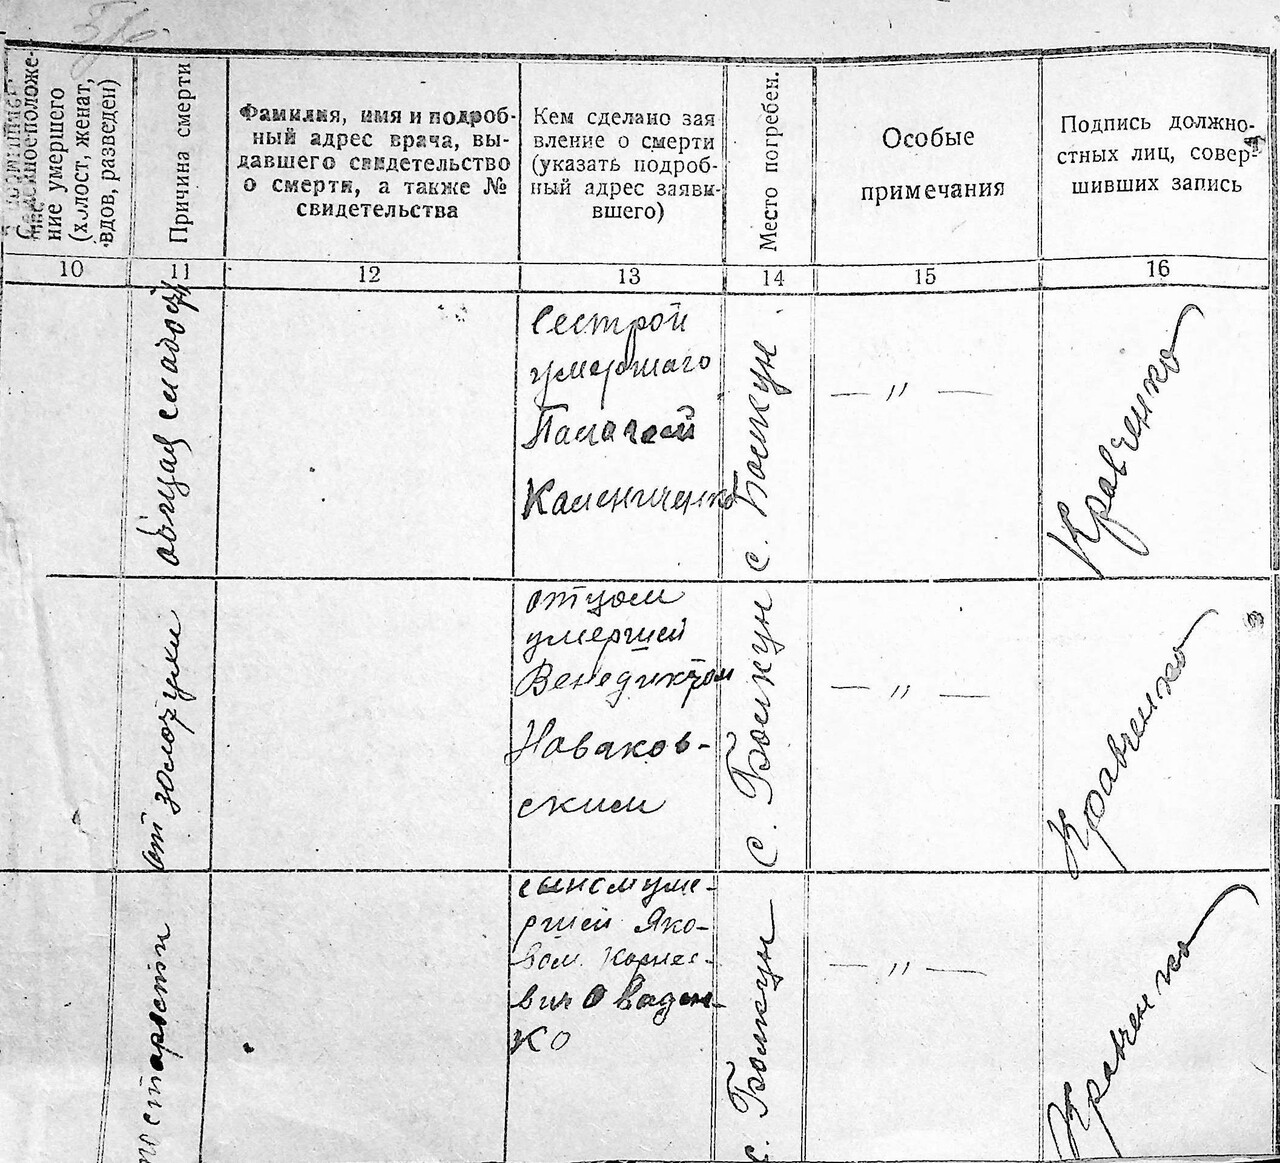 ние умершего
(холост, женат,
вдов, разведен)
Причина смерти
Фамилия, имя и подроб-
ный адрес врача, вы-
давшего свидетельство
о смерти, а также №
свидетельства
Кем сделано зая
вление о смерти
(указать подроб-
ный адрес заяви-
вшего)
Место погребен.
Особые
примечания
Подпись должно-
стных лиц, совер-
шивших запись
10
11
12
13
14
15
16
общая слабость
Сестрой
умершаго
Палагеей
Каленіченко
— „ —
Кравченко
от золотухи
отцом
умершей
Венедиктом
Новаков-
ским
— „ —
Кравченко
по старости
сыном уме-
ршей Яко-
вом Корнее-
вич Оваден-
ко
— „ —
Кравченко